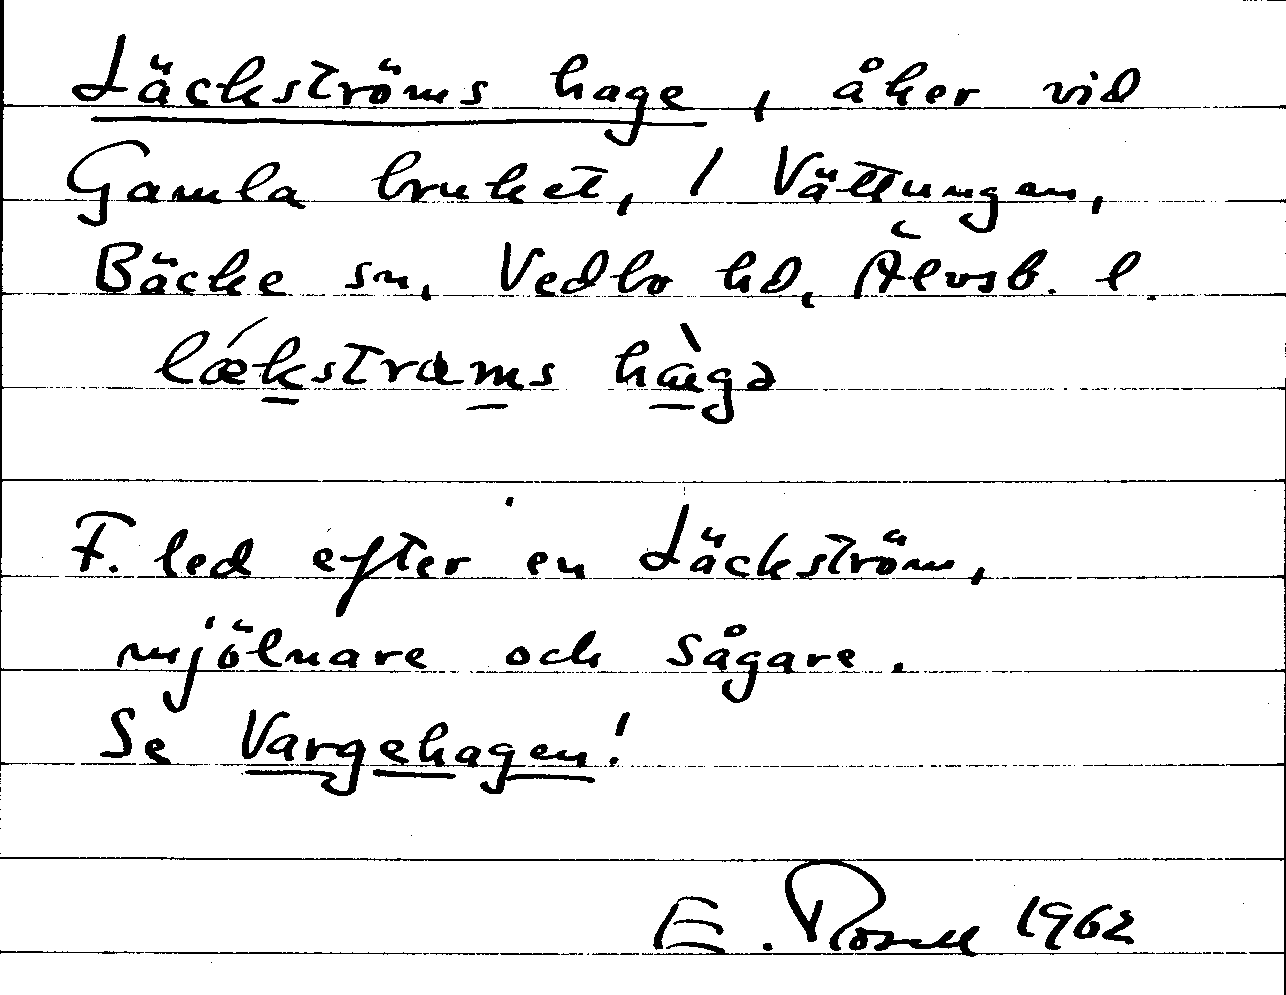 Läckströms hage, åker vid
Gamla bruket, 1 Vättungen,
Bäcke sn, Vedbo hd, Älvsb. l.
lækstrɷms hàgə
F. led efter en Läckström,
mjölnare och sågare.
Se Vargehagen!
E. Rosell 1962